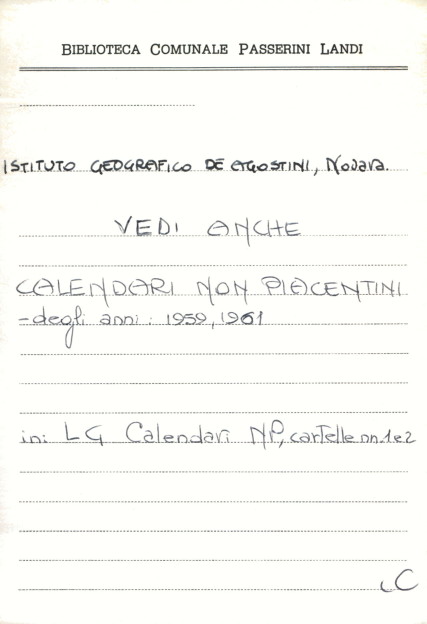 BIBLIOTECA COMUNALE PASSERINI LANDI
ISTITUTO GEOGRAFICO DE AGOSTINI, Novara.
VEDI ANCHE
CALENDARI NON PIACENTINI
-degli anni: 1959, 1961
in: LG Calendari NP, cartelle nn. 1e2